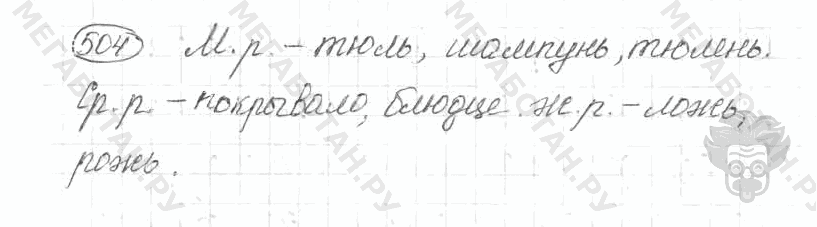 504 М.р. – тюль, шампунь, тюлень.
Ср.р. – покрывало, блюдце. ж.р. – ложь,
рожь.
МЕГАБОТАН.РУ